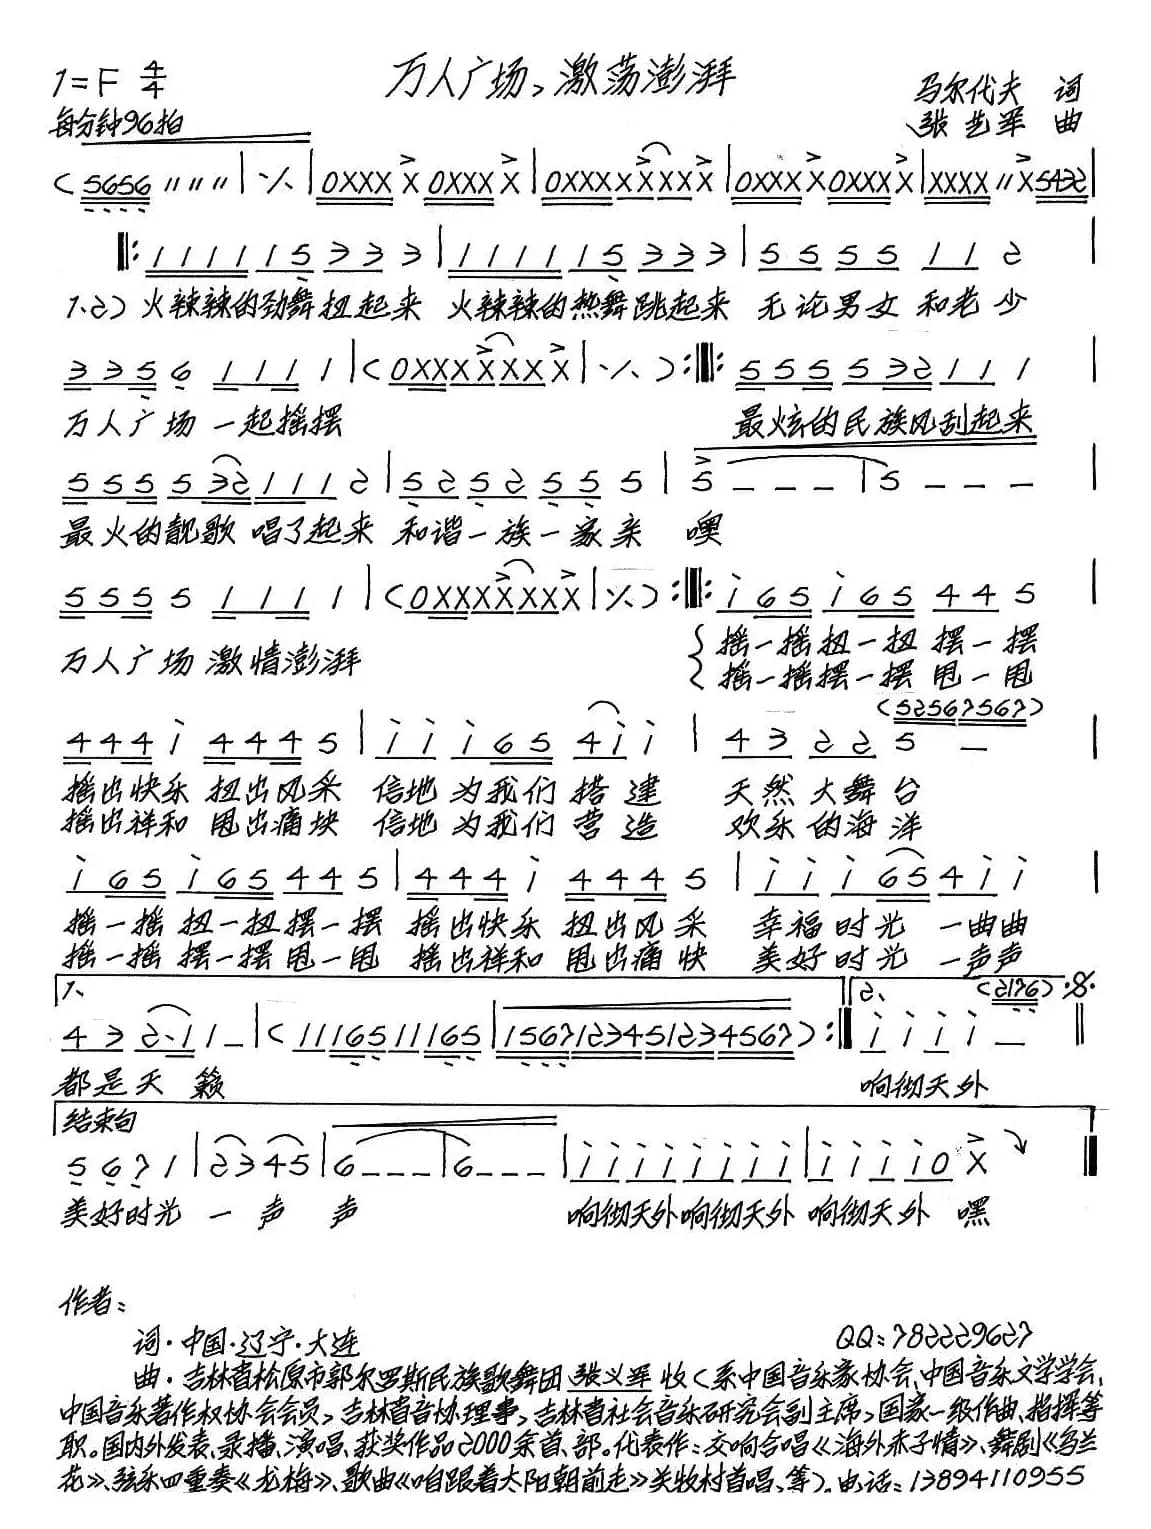 1=F 4/4 万人广场，激荡澎湃 马尔代夫 词
每分钟96拍 张艺军 曲
( 5656 〃 〃 〃 | ٪ | 0XXX X 0XXX X | 0XXX X XXXX X | 0XXX X 0XXX X | XXXX 〃 X 5432 |
‖: 1 1 1 1 1 1 5 3 3 3 3 | 1 1 1 1 1 1 5 3 3 3 3 | 5 5 5 5 1 1 2 |
1.2) 火辣辣的劲舞扭起来 火辣辣的热舞跳起来 无论男女 和老少
3 3 5 6 1 1 1 1 | ( 0XXX XXXX X | ٪ ) :‖: 5 5 5 5 3 2 1 1 1 |
万人广场 一起摇摆 最炫的民族风刮起来
5 5 5 5 3 2 1 1 1 2 | 5 2 5 2 5 5 5 5 | 5 — — — | 5 — — — |
最火的靓歌 唱了起来 和谐一族一家亲 噢
5 5 5 5 1 1 1 1 | ( 0XXXXXXX X | ٪ ) :‖: i 6 5 i 6 5 4 4 5 |
万人广场 激情澎湃 摇一摇扭一扭 摆一摆
摇一摇摆一摆 甩一甩
(52567567)
4 4 4 i 4 4 4 5 | i i i 6 5 4 i i | 4 3 2 2 5 — |
摇出快乐 扭出风采 信地 为我们 搭建 天然大舞台
摇出祥和 甩出痛快 信地 为我们 营造 欢乐的海洋
i 6 5 i 6 5 4 4 5 | 4 4 4 i 4 4 4 5 | i i i 6 5 4 i i |
摇一摇 扭一扭摆一摆 摇出快乐 扭出风采 幸福时光 一曲曲
摇一摇 摆一摆甩一甩 摇出祥和 甩出痛快 美好时光 一声声
1、 2、 (2176) :𝄋.
4 3 2·1 1 — | ( 11165 11165 | 1567 12345 1234567 ) :‖ i i i i — ‖
都是天籁 响彻天外
结束句
5 6 7 1 | 2 3 4 5 | 6 — — — | 6 — — — | i i i i i i i i | i i i i 0 X ‖
美好时光 一声声 响彻天外响彻天外 响彻天外 嘿
作者：
词·中国·辽宁·大连 QQ：782229627
曲·吉林省松原市郭尔罗斯民族歌舞团 张义军 收（系中国音乐家协会、中国音乐文学学会，
中国音乐著作权协会会员，吉林省音协理事，吉林省社会音乐研究会副主席，国家一级作曲、指挥等
职。国内外发表、录播、演唱、获奖作品2000余首、部。代表作：交响合唱《海外赤子情》、舞剧《乌兰
花》、弦乐四重奏《龙梅》、歌曲《咱跟着太阳朝前走》关牧村首唱、等）。电话：13894110955